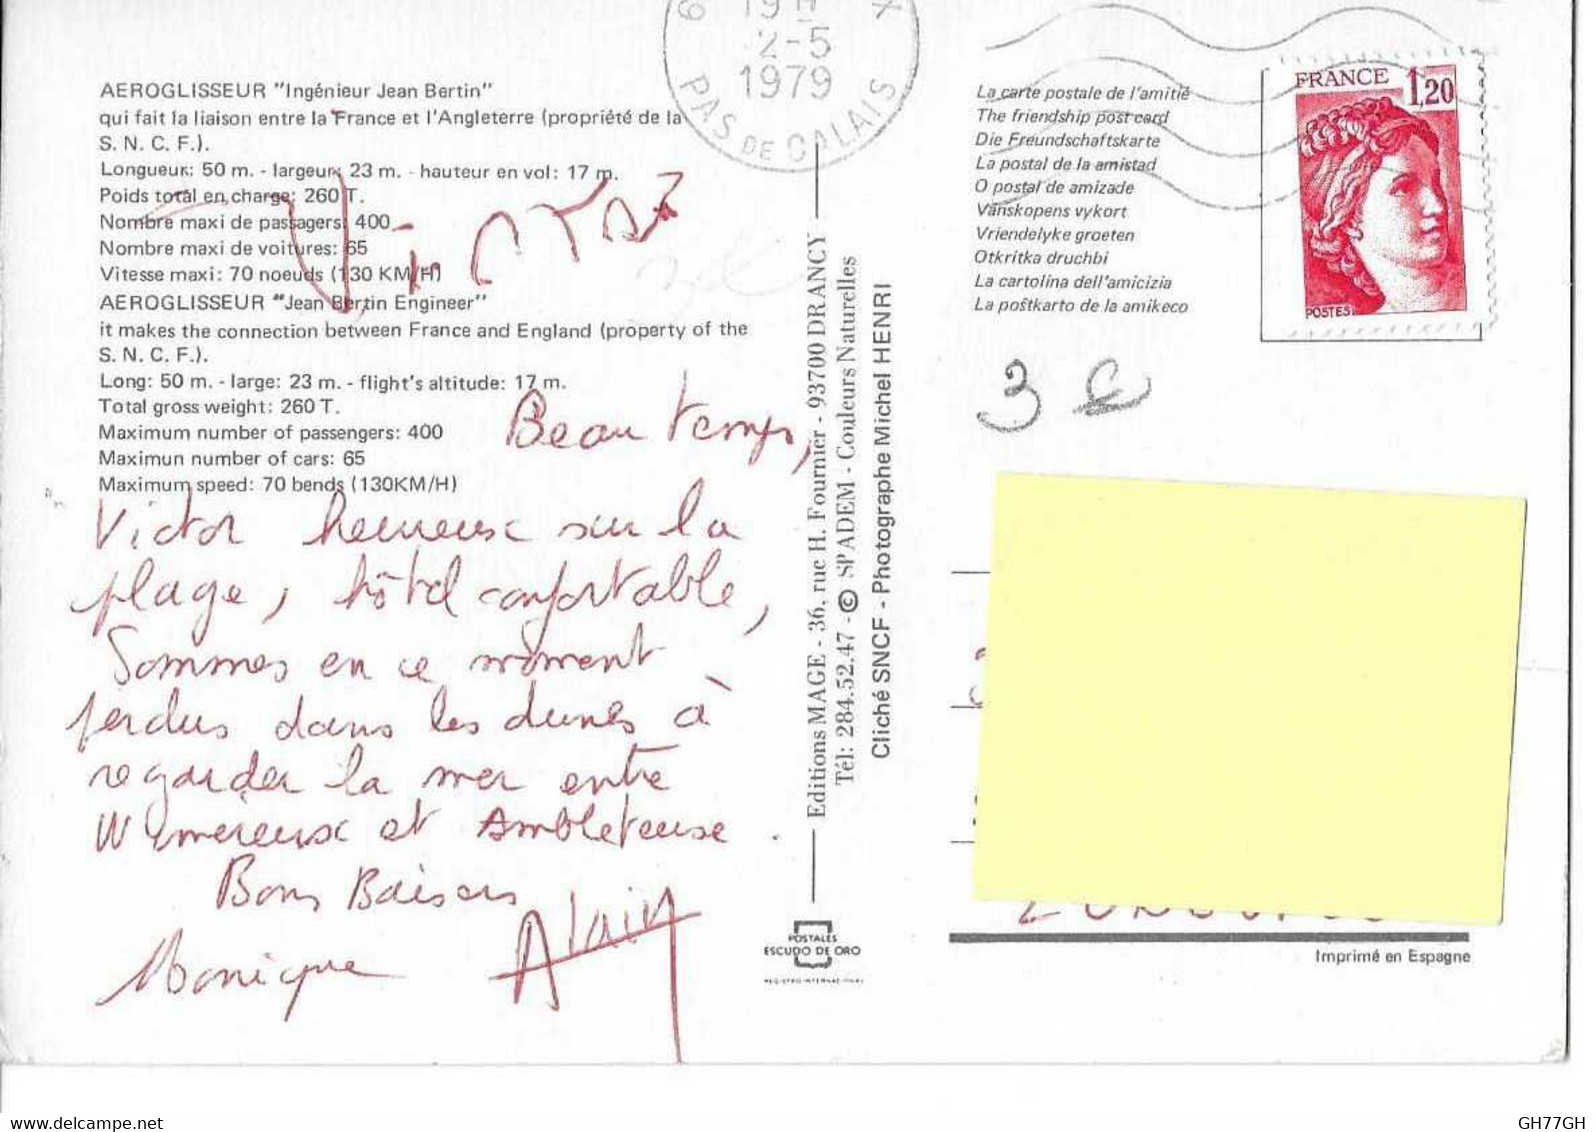 AEROGLISSEUR "Ingénieur Jean Bertin"
qui fait la liaison entre la France et l'Angleterre (propriété de la
S. N. C. F.).
Longueur: 50 m. - largeur: 23 m. - hauteur en vol: 17 m.
Poids total en charge: 260 T.
Nombre maxi de passagers: 400
Nombre maxi de voitures: 65
Vitesse maxi: 70 noeuds (130 KM/H)
AEROGLISSEUR "Jean Bertin Engineer"
it makes the connection between France and England (property of the
S. N. C. F.).
Long: 50 m. - large: 23 m. - flight's altitude: 17 m.
Total gross weight: 260 T.
Maximum number of passengers: 400
Maximun number of cars: 65
Maximum speed: 70 bends (130KM/H)
Victor
Beau temps,
Victor heureux sur la
plage, hôtel confortable,
Sommes en ce moment
perdus dans les dunes à
regarder la mer entre
Wimereux et Ambleteuse.
Bons Baisers
Monique Alain
2-5
1979
PAS DE CALAIS
Editions MAGE - 36, rue H. Fournier - 93700 DRANCY
Tél: 284.52.47 - © SPADEM - Couleurs Naturelles
Cliché SNCF - Photographe Michel HENRI
POSTALES
ESCUDO DE ORO
La carte postale de l'amitié
The friendship post card
Die Freundschaftskarte
La postal de la amistad
O postal de amizade
Vänskopens vykort
Vriendelyke groeten
Otkritka druchbi
La cartolina dell'amicizia
La poŝtkarto de la amikeco
FRANCE 1,20
POSTES
3 €
Imprimé en Espagne
GH77GH
www.delcampe.net